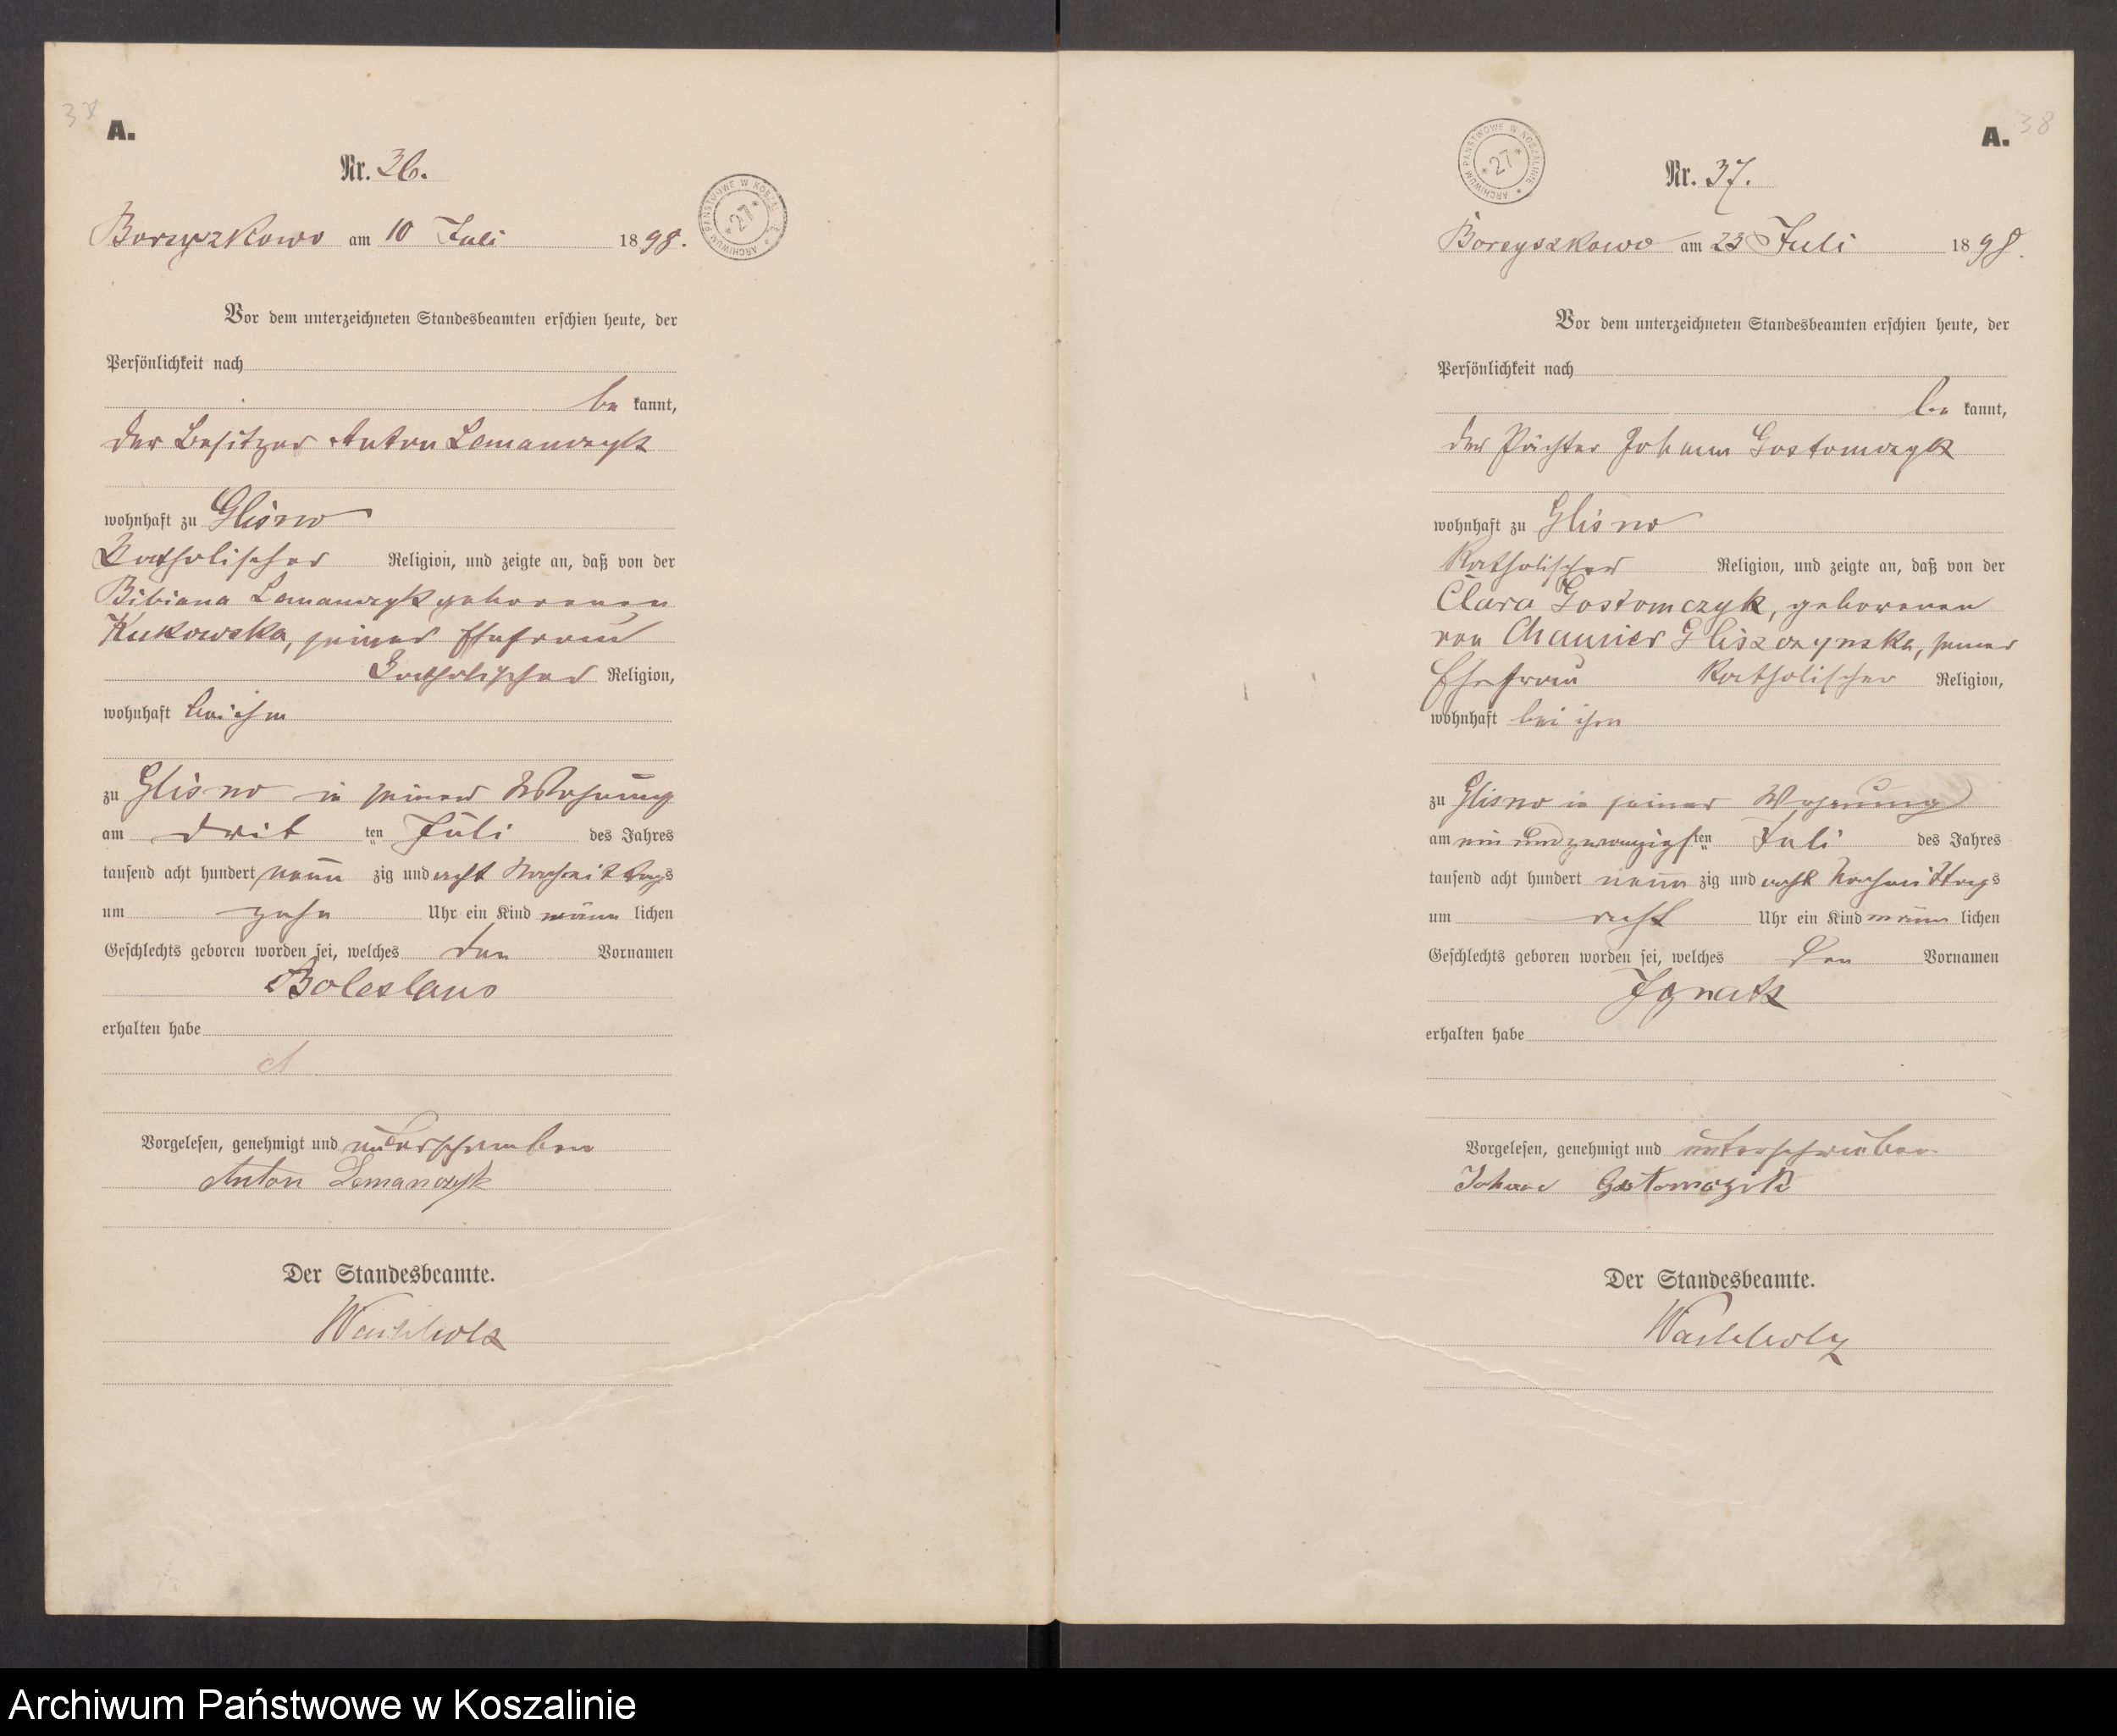 37
A.
Nr. 36.
Borzyszkowo am 10 Juli 1898.
ARCHIWUM PAŃSTWOWE W KOSZALINIE
*27*
Vor dem unterzeichneten Standesbeamten erschien heute, der
Persönlichkeit nach
be kannt,
der Besitzer Anton Lemanczyk
wohnhaft zu Glisno
Katholischer Religion, und zeigte an, daß von der
Bibiana Lemanczyk geborenen
Kukowska, seiner Ehefrau
Katholischer Religion,
wohnhaft bei ihm
zu Glisno in seiner Wohnung
am drit ten Juli des Jahres
tausend acht hundert neun zig und acht Nachmittags
um zehn Uhr ein Kind männ lichen
Geschlechts geboren worden sei, welches den Vornamen
Boleslaus
erhalten habe
Vorgelesen, genehmigt und unterschrieben
Anton Lemanczyk
Der Standesbeamte.
Wachholz
38
A.
ARCHIWUM PAŃSTWOWE W KOSZALINIE
*27*
Nr. 37.
Borzyszkowo am 23 Juli 1898.
Vor dem unterzeichneten Standesbeamten erschien heute, der
Persönlichkeit nach
be kannt,
der Pächter Johann Gostomczyk
wohnhaft zu Glisno
Katholischer Religion, und zeigte an, daß von der
Clara Gostomczyk, geborenen
von Chamier Gliszczynska, seiner
Ehefrau Katholischer Religion,
wohnhaft bei ihm
zu Glisno in seiner Wohnung
am ein und zwanzigs ten Juli des Jahres
tausend acht hundert neun zig und acht Nachmittags
um acht Uhr ein Kind männ lichen
Geschlechts geboren worden sei, welches den Vornamen
Ignatz
erhalten habe
Vorgelesen, genehmigt und unterschrieben
Johann Gostomczik
Der Standesbeamte.
Wachholz
Archiwum Państwowe w Koszalinie